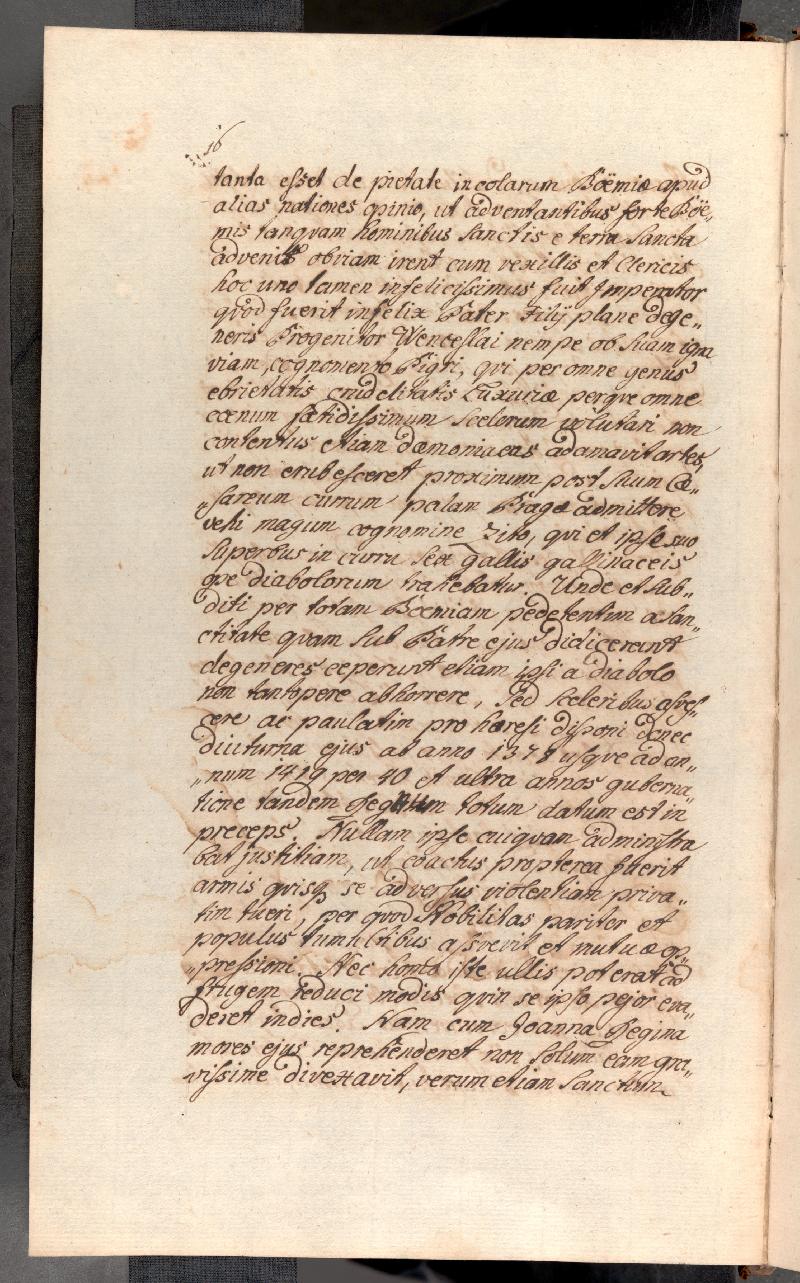 16
tanta esset de pietate incolarum Böemiæ apud
alias nationes opinio, ut adventantibus forte Böë„
mis tanqvam hominibus sanctis e terra Sancta
advenis obviam irent cum vexillis et Clericis
hoc uno tamen infelicissimus fuit Imperator
qvòd fuerit infelix Pater Filij plane dege„
neris Progenitor Wenceslai nempe ob suam igna
viam, cognomento Pigri, qvi per omne genus
ebrietatis crudelitatis Luxuriæ perqve omne
cœnum fœtidissimum scelerum volutari non
contentus etiam dæmoniacas adamavit artes,
ut non erubesceret proximum post suum Cæ„
„sareum currum palam Pragæ admittere
vehi magum cognomine Zito, qvi et ipse suo
superbus in curru sex gallis gallinaceis
qve diabolorum trahebatur. Unde et sub„
diti per totam Boemiam pedetentim a san„
ctitate qvam sub Patre ejus didicerant
degeneres ceperunt etiam ipsi a diabolo
non tantopere abhorrere, sed sceleribus asves„
cere ac paulatim pro hæresi disponi donec
diuturna ejus ab anno 1378 usqve ad an„
„num 1419 per 40 et ultra annos guberna„
tione tandem Regnum totum datum est in
preceps. Nullam ipse cuiqvam administra
bat justitiam, ut coactus propterea fuerit
armis qvisq se adversus violentiam priva„
tim tueri, per qvod Nobilitas pariter et
populus tumultibus assvevit et mutuæ op„
„pressioni. Nec homo iste ullis poterat ad
frugem reduci modis qvin se ipso pejor eva„
deret indies. Nam cum Joanna Regina
mores ejus reprehenderet non solum eam gra„
vissime divexavit, verum etiam Sanctum